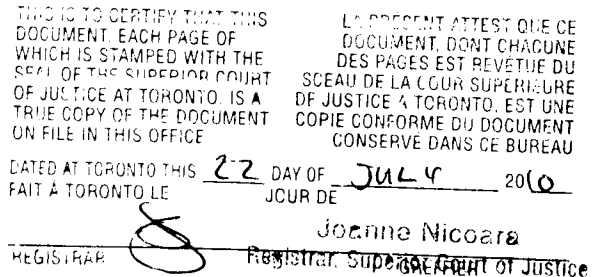 THIS IS TO CERTIFY THAT THIS
DOCUMENT, EACH PAGE OF
WHICH IS STAMPED WITH THE
SEAL OF THE SUPERIOR COURT
OF JUSTICE AT TORONTO, IS A
TRUE COPY OF THE DOCUMENT
ON FILE IN THIS OFFICE
LA PRESENT ATTEST QUE CE
DOCUMENT, DONT CHACUNE
DES PAGES EST REVÊTUE DU
SCEAU DE LA COUR SUPERIEURE
DE JUSTICE A TORONTO, EST UNE
COPIE CONFORME DU DOCUMENT
CONSERVÉ DANS CE BUREAU
DATED AT TORONTO THIS 22 DAY OF JULY 2010
FAIT À TORONTO LE JOUR DE
Joanne Nicoara
REGISTRAR GREFFIER
Registrar, Superior Court of Justice